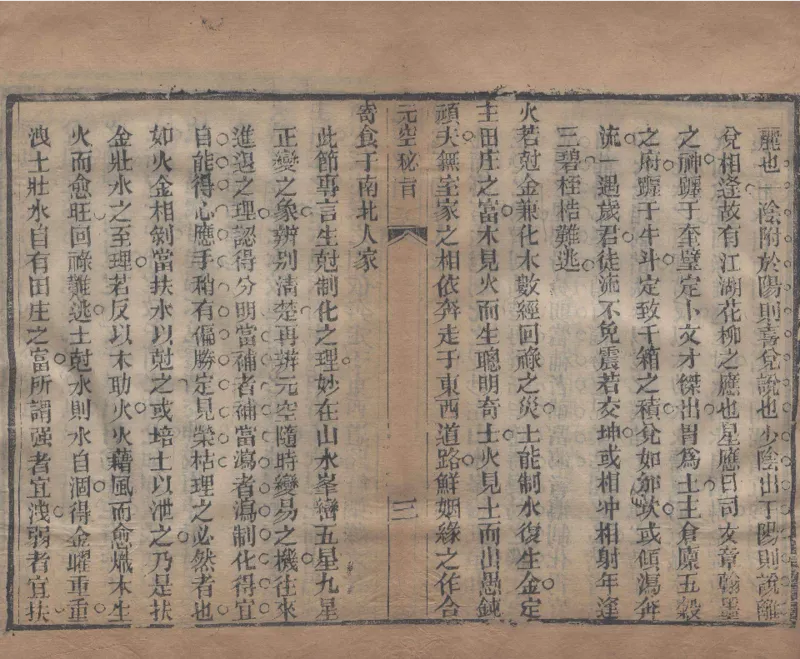 麗也一陰附於陽則喜兌說也少陰出于陽則說離
兌相逢故有江湖花柳之應也星應曰司文章翰墨
之神躔于奎璧定卜文才傑出胃為土土主倉廩五穀
之府躔于牛斗定致千箱之積兌如卯坎或傾瀉奔
流一遇歲君徒流不免震若交坤或相冲相射年逢
三碧桎梏難逃
火若尅金兼化木數經回祿之災土能制水復生金定
主田庄之富木見火而生聰明奇士火見土而出愚鈍
頑夫無室家之相依奔走于東西道路鮮姻緣之作合
元空秘言
三
寄食于南北人家
此節專言生尅制化之理妙在山水峯巒五星九星
正變之象辨别清楚再辨元空隨時變易之機往來
進退之理認得分明當補者補當瀉者瀉制化得宜
自能得心應手稍有偏勝定見榮枯理之必然者也
如火金相剝當扶水以尅之或培土以泄之乃是扶
金壯水之至理若反以木助火火藉風而愈熾木生
火而愈旺回祿難逃土尅水則水自涸得金曜重重
洩土壯水自有田庄之富所謂强者宜洩弱者宜扶